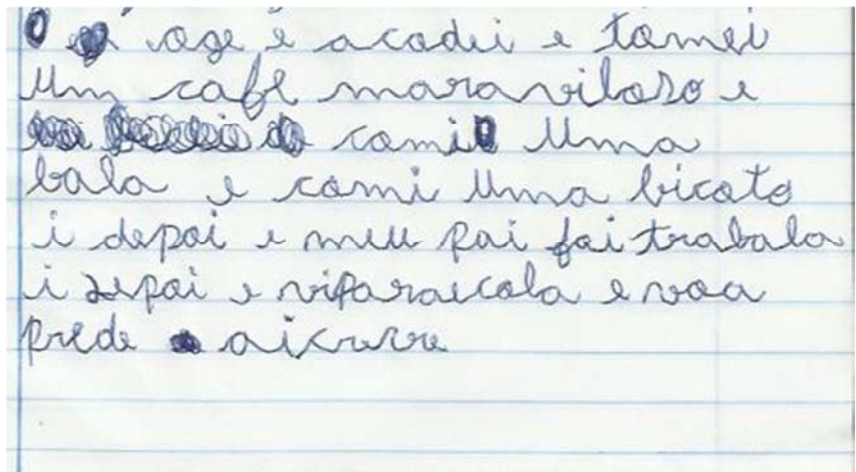 oge é acodei e tomei
um cafe maraviloso e
comi uma
bala e comi uma bicoto
i depoi e meu pai foi trabala
i depoi e viparaicola e voa
prede aicreve